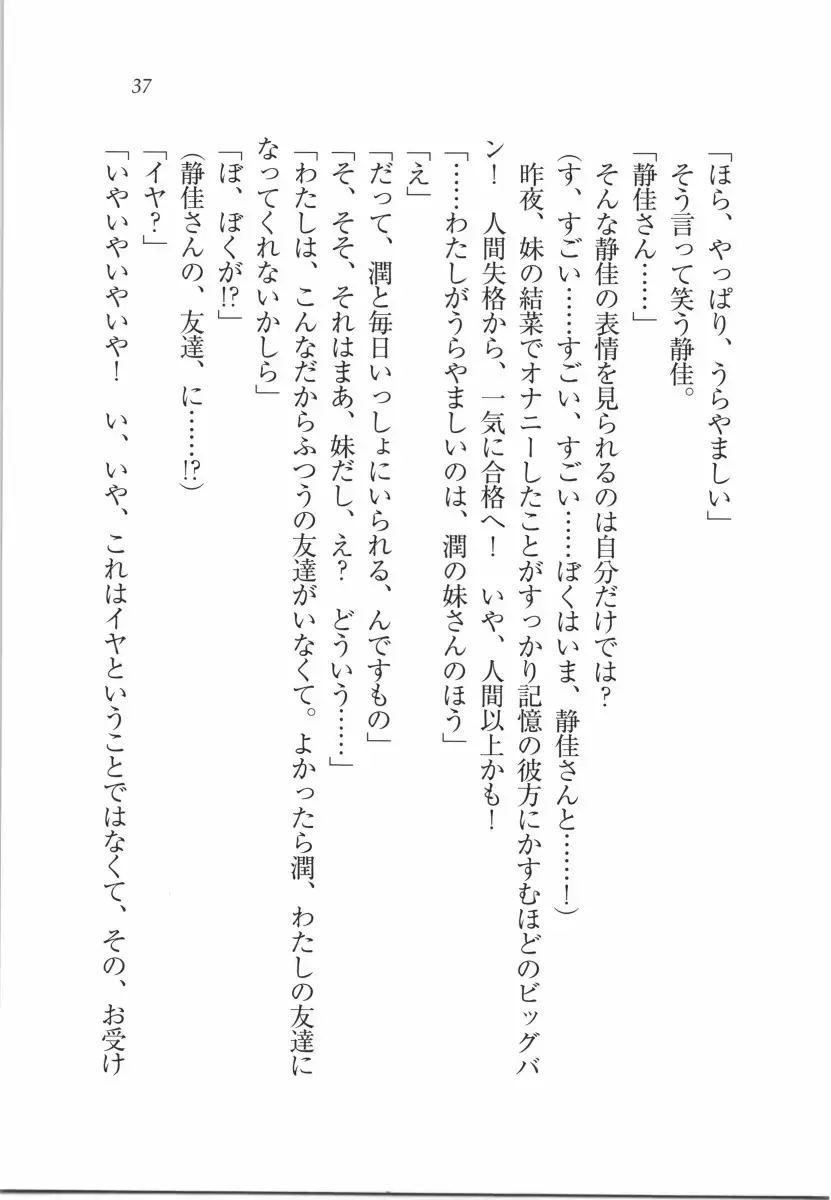 37
「ほら、やっぱり、うらやましい」
そう言って笑う静佳。
「静佳さん……」
そんな静佳の表情を見られるのは自分だけでは？
（す、すごい……すごい、すごい……ぼくはいま、静佳さんと……！）
昨夜、妹の結菜でオナニーしたことがすっかり記憶の彼方にかすむほどのビッグバ
ン！　人間失格から、一気に合格へ！　いや、人間以上かも！
「……わたしがうらやましいのは、潤の妹さんのほう」
「え」
「だって、潤と毎日いっしょにいられる、んですもの」
「そ、そそ、それはまあ、妹だし、え？　どういう……」
「わたしは、こんなだからふつうの友達がいなくて。よかったら潤、わたしの友達に
なってくれないかしら」
「ぼ、ぼくが!?」
（静佳さんの、友達、に……!?）
「イヤ？」
「いやいやいやいや！　い、いや、これはイヤということではなくて、その、お受け